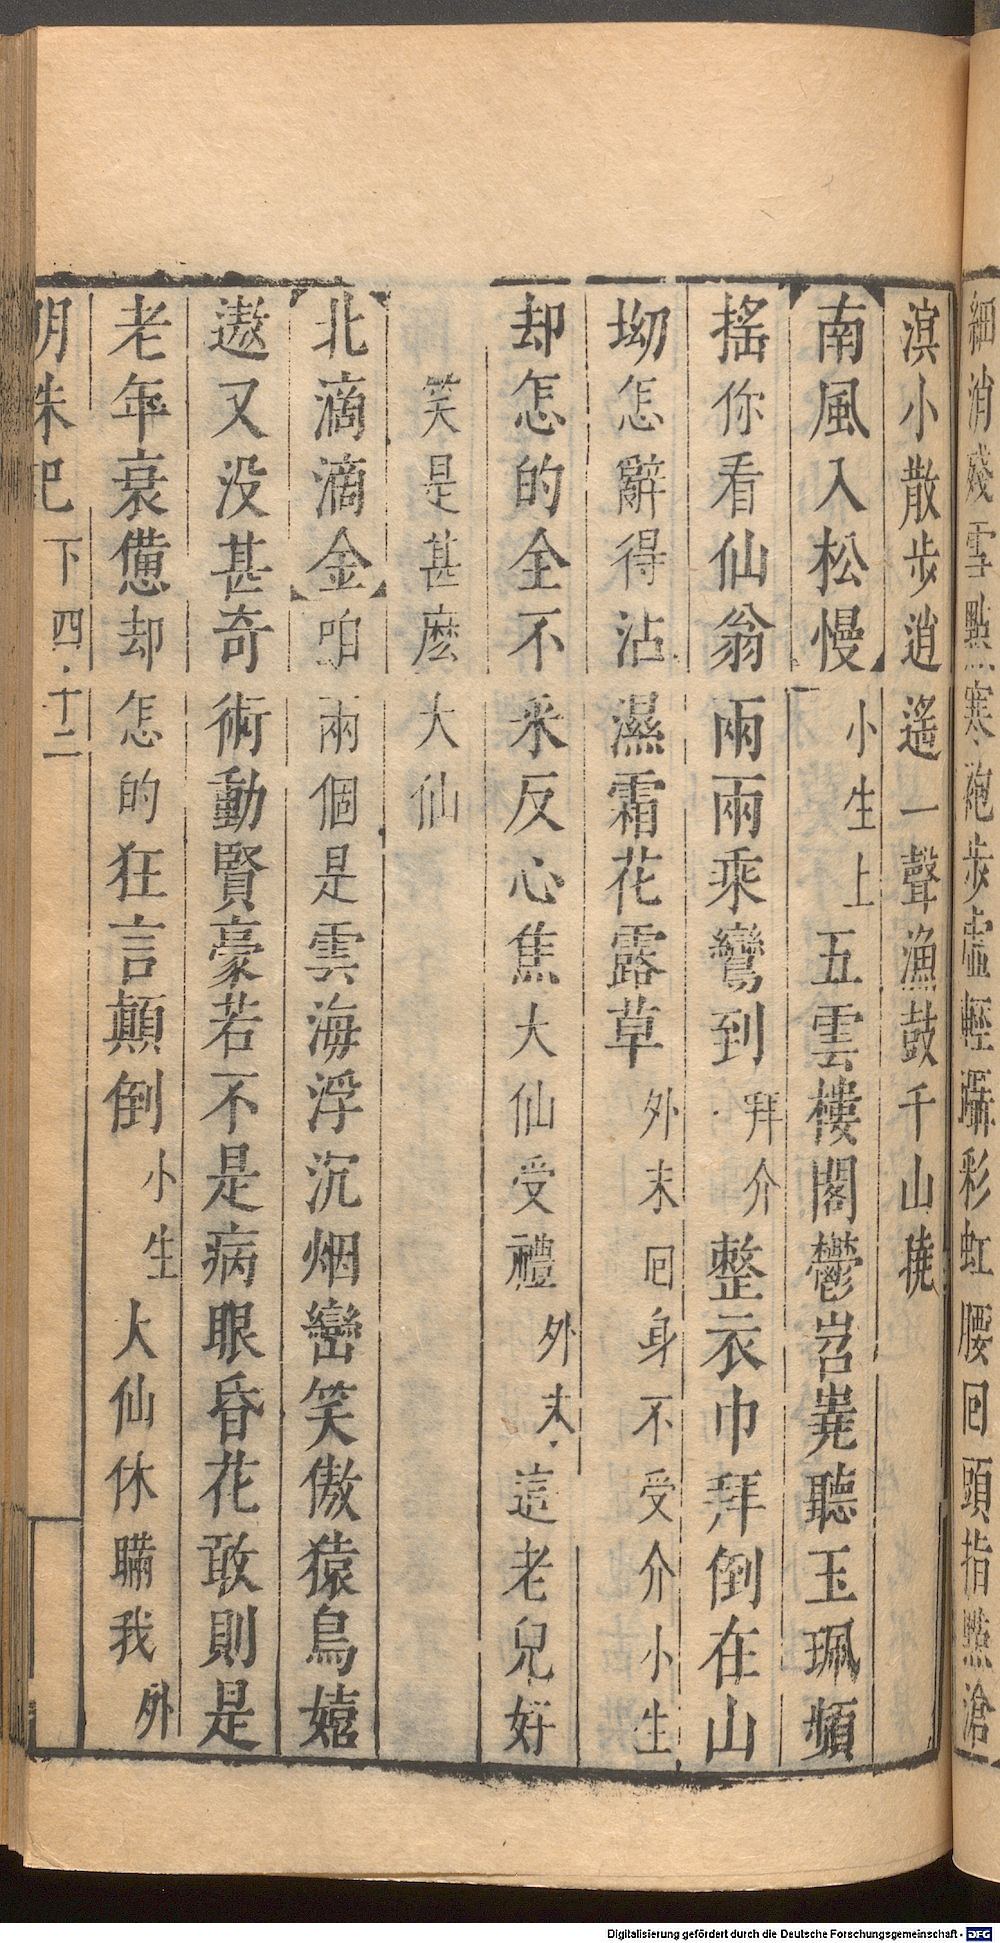 細消殘雪點寒袍步虛輕躡彩虹腰回頭指點滄
溟小散步逍遙一聲漁鼓千山曉
南風入松慢小生上五雲樓閣鬱岧嶤聽玉珮頻
搖你看仙翁兩兩乘鸞到拜介整衣巾拜倒在山
坳怎辭得沾濕霜花露草外末回身不受介小生
却怎的全不采反心焦大仙受禮外末這老兒好
笑是甚麽大仙
北滴滴金咱兩個是雲海浮沉烟巒笑傲猿鳥嬉
遨又没甚奇術動賢豪若不是病眼昏花敢則是
老年衰憊却怎的狂言顛倒小生大仙休瞞我外
明珠記 下 四十二
Digitalisierung gefördert durch die Deutsche Forschungsgemeinschaft - DFG